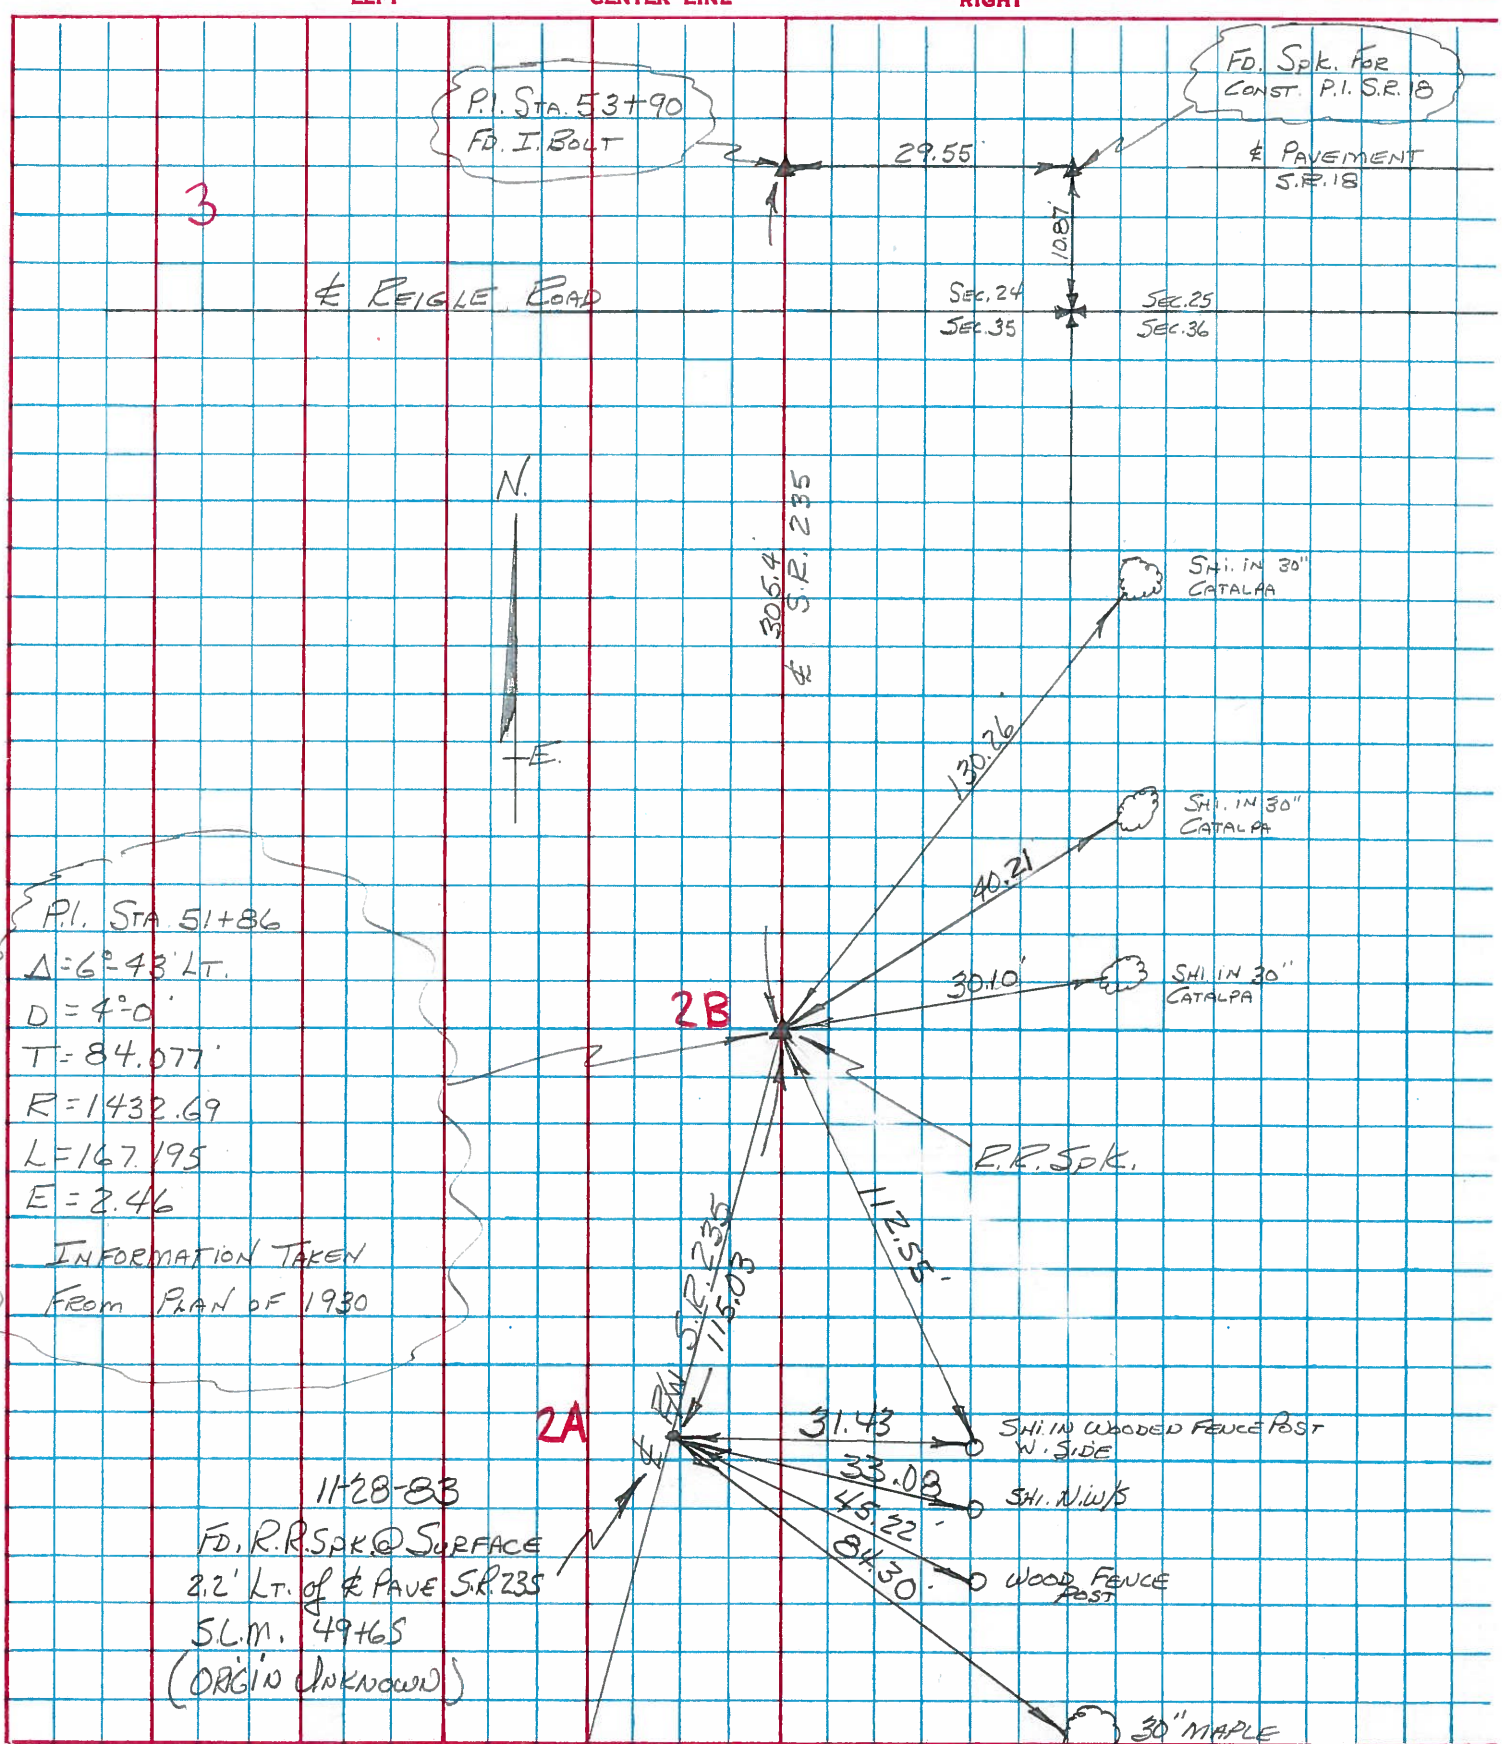 LEFT
CENTER LINE
RIGHT
P.I. STA. 53+90
FD. I. BOLT
FD. SPK. FOR
CONST. P.I. S.R. 18
29.55'
℄ PAVEMENT
S.R. 18
3
10.87'
℄ REIGLE ROAD
SEC. 24
SEC. 35
SEC. 25
SEC. 36
N.
E.
305.4'
℄ S.R. 235
SHI. IN 30"
CATALPA
130.26'
SHI. IN 30"
CATALPA
40.21'
30.10'
SHI. IN 30"
CATALPA
P.I. STA. 51+86
Δ=6°-43' LT.
D = 4°-0'
T= 84.077'
R=1432.69
L=167.195
E = 2.46
INFORMATION TAKEN
FROM PLAN OF 1930
2B
R.R. SPK.
112.55'
℄ R/W S.R. 235
115.03
2A
31.43
SHI. IN WOODED FENCE POST
W. SIDE
33.08
SHI. N.W/S
45.22'
WOOD FENCE
POST
84.30'
30" MAPLE
11-28-83
FD. R.R. SPK. @ SURFACE
2.2' LT. of ℄ PAVE S.R. 235
S.L.M. 49+65
(ORIGIN UNKNOWN)